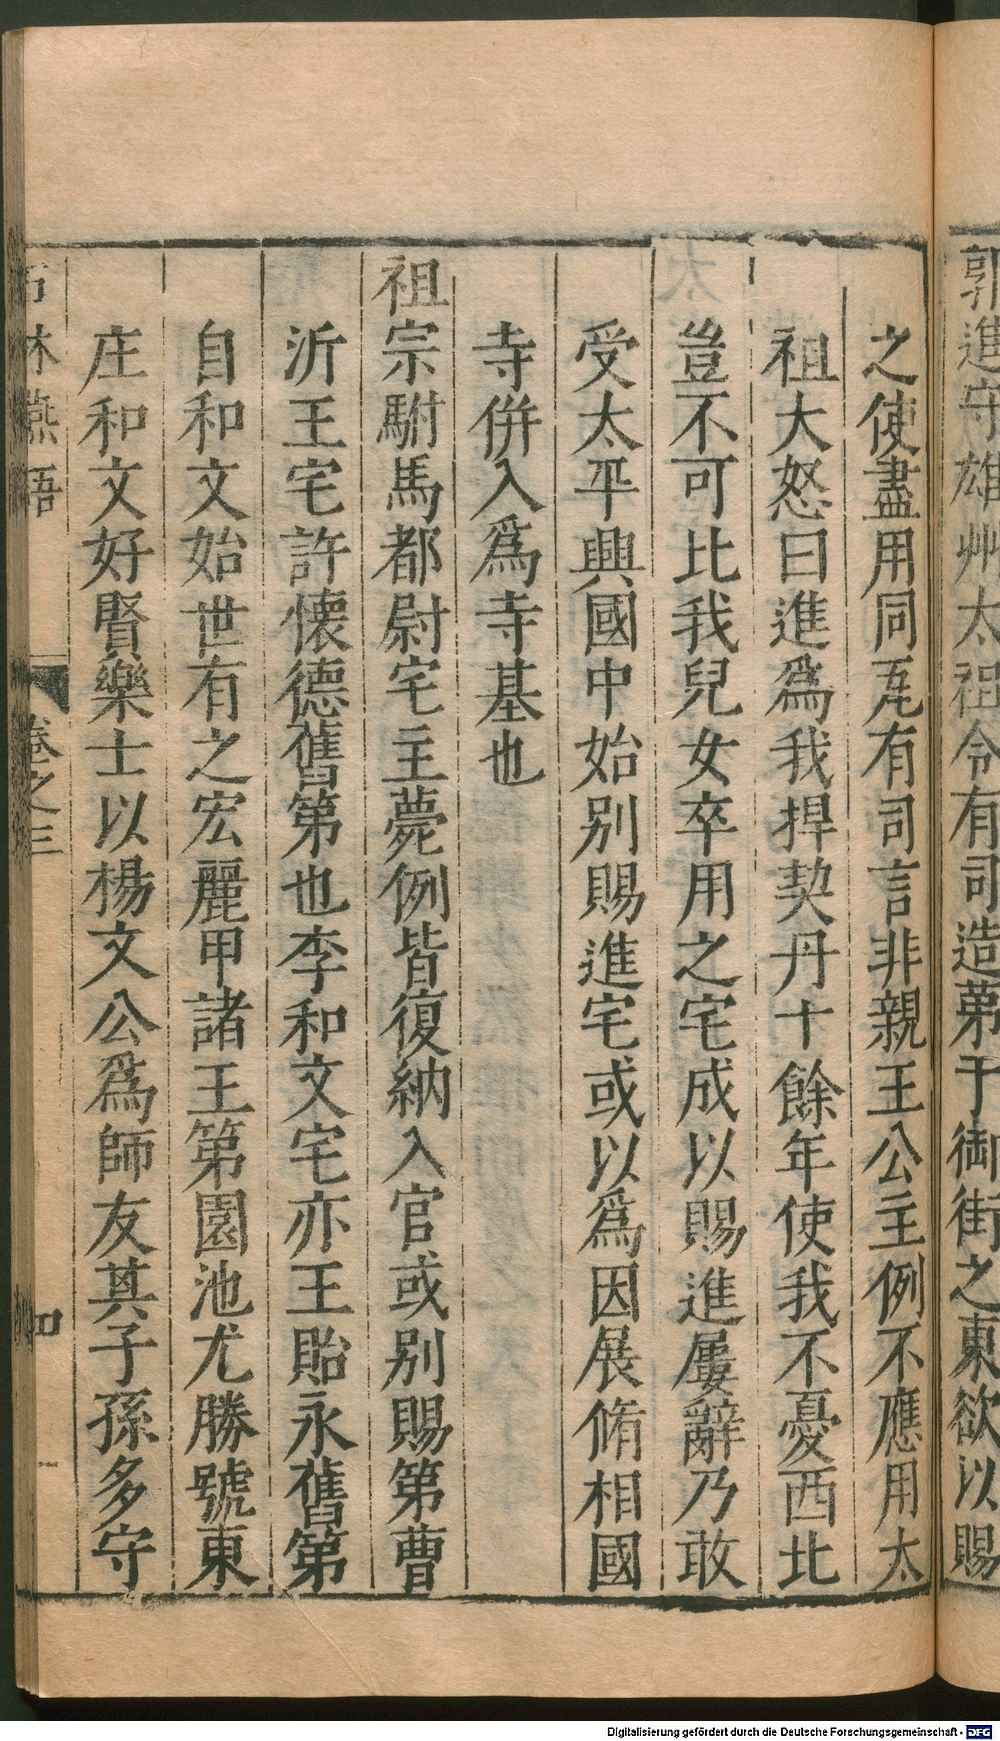 郭進守雄州太祖令有司造第于御街之東欲以賜
之使盡用同瓦有司言非親王公主例不應用太
祖大怒曰進爲我捍契丹十餘年使我不憂西北
豈不可比我兒女卒用之宅成以賜進屢辭乃敢
受太平興國中始別賜進宅或以爲因展脩相國
寺併入爲寺基也
祖宗駙馬都尉宅主薨例皆復納入官或別賜第曹
沂王宅許懷德舊第也李和文宅亦王貽永舊第
自和文始世有之宏麗甲諸王第園池尤勝號東
庄和文好賢樂士以楊文公爲師友其子孫多守
石林燕語 卷之三 四
Digitalisierung gefördert durch die Deutsche Forschungsgemeinschaft - DFG